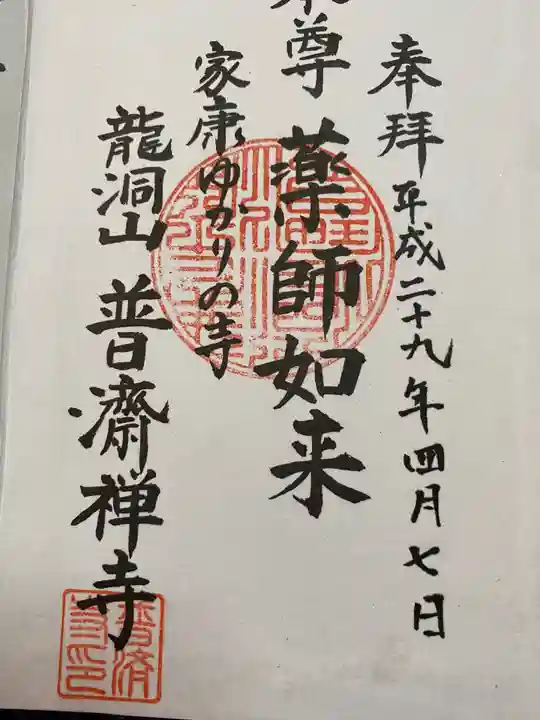 奉拝 平成二十九年四月七日
尊 薬師如来
家康ゆかりの寺
龍洞山 普濟禅寺